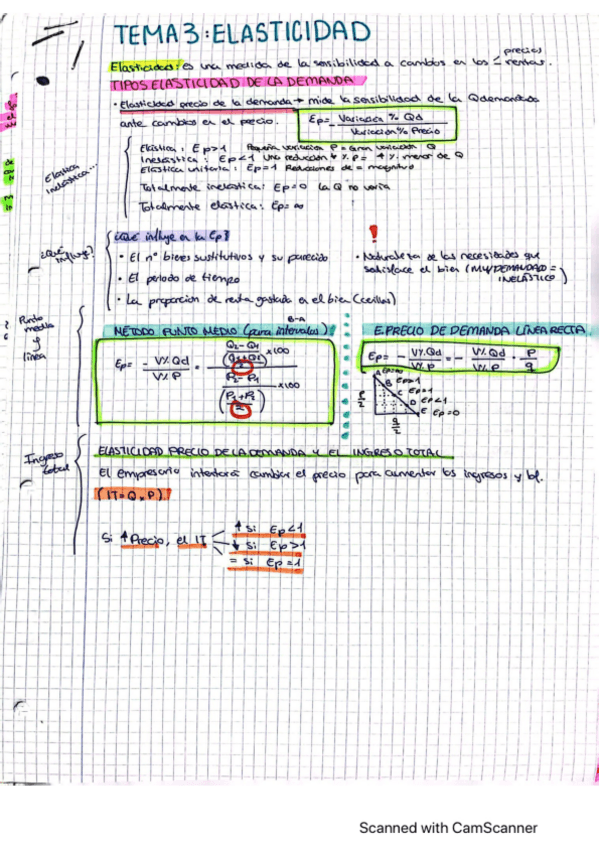 TEMA 3: ELASTICIDAD
Elasticidad: es una medida de la sensibilidad a cambios en los < precios rentas.
TIPOS ELASTICIDAD DE LA DEMANDA
• Elasticidad precio de la demanda → mide la sensibilidad de la Qdemandada
ante cambios en el precio.
Ep = - Variación % Qd / Variación % Precio
Elástica
inelástica...
Elástica: Ep>1 Pequeña variación P = Gran variación Q
Inelástica: Ep<1 Una reducción % P = % menor de Q
Elástica unitaria: Ep=1 Reducciones de = magnitud
Totalmente inelástica: Ep=0 la Q no varía
Totalmente elástica: Ep=∞
¿Qué influye?
¿Qué influye en la Ep?
• El nº bienes sustitutivos y su parecido
• El periodo de tiempo
• La proporción de renta gastada en el bien (cerillas)
!
• Naturaleza de las necesidades que
satisface el bien (MV/DEMANDAD =
INELÁSTICO)
Punto
medio
y
línea
B-A
MÉTODO PUNTO MEDIO (para intervalos)
Ep = - V% Qd / V% P · Q2 - Q1 / (Q1+Q2 / 2) x100 / P2 - P1 / (P1+P2 / 2) x100
E.PRECIO DE DEMANDA LÍNEA RECTA
Ep = - V% Qd / V% P = - V% Qd / V% P · P / q
A Ep=∞
B Ep>1
C Ep=1
D Ep<1
E Ep=0
P/2
q/2
Ingreso
total
ELASTICIDAD PRECIO DE LA DEMANDA Y EL INGRESO TOTAL
El empresario intentará cambiar el precio para aumentar los ingresos y bf.
(IT = Q · P)!
Si ↑ Precio, el IT
↑ Si Ep<1
↓ Si Ep>1
= Si Ep=1
Scanned with CamScanner